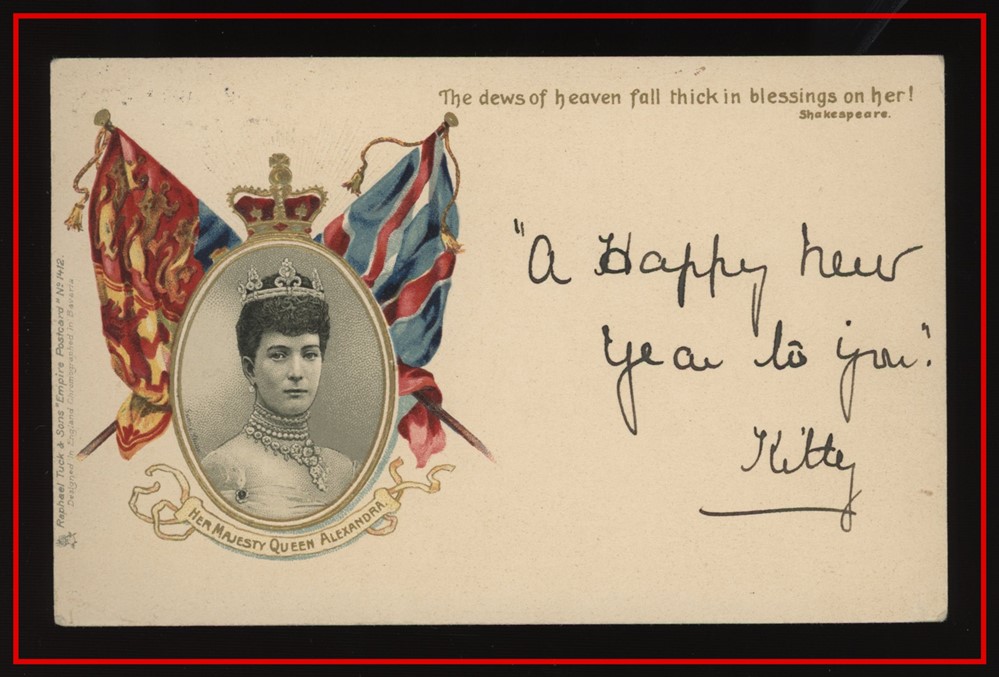 The dews of heaven fall thick in blessings on her!
Shakespeare.
"A Happy new
Year to you."
Kitty
HER MAJESTY QUEEN ALEXANDRA.
Raphael Tuck & Sons "Empire Postcard" No 1412.
Designed in England Chromographed in Bavaria